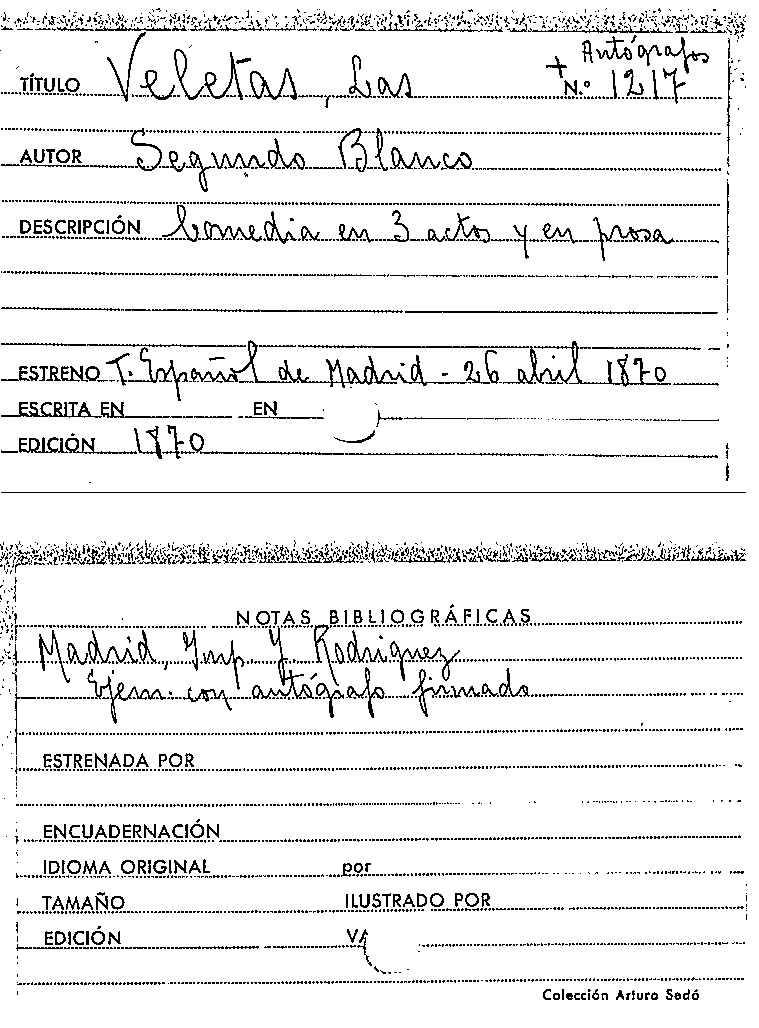 + Autógrafos
TÍTULO Veletas, Las N.º 1217
AUTOR Segundo Blanco
DESCRIPCIÓN Comedia en 3 actos y en prosa
ESTRENO T. Español de Madrid - 26 abril 1870
ESCRITA EN EN
EDICIÓN 1870
NOTAS BIBLIOGRÁFICAS
Madrid, Imp. Y Rodriguez
Ejem. con autógrafo firmado
ESTRENADA POR
ENCUADERNACIÓN
IDIOMA ORIGINAL por
TAMAÑO ILUSTRADO POR
EDICIÓN
Colección Arturo Sedó